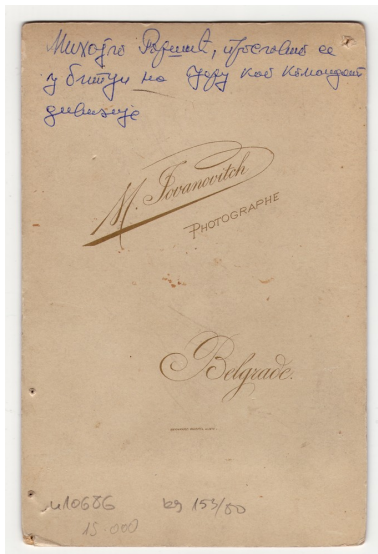 Михајло Рашић, прославио се
у битци на Церу као командант
дивизије
M. Jovanovitch
PHOTOGRAPHE
Belgrade.
и10686 кз 153/80
15.000